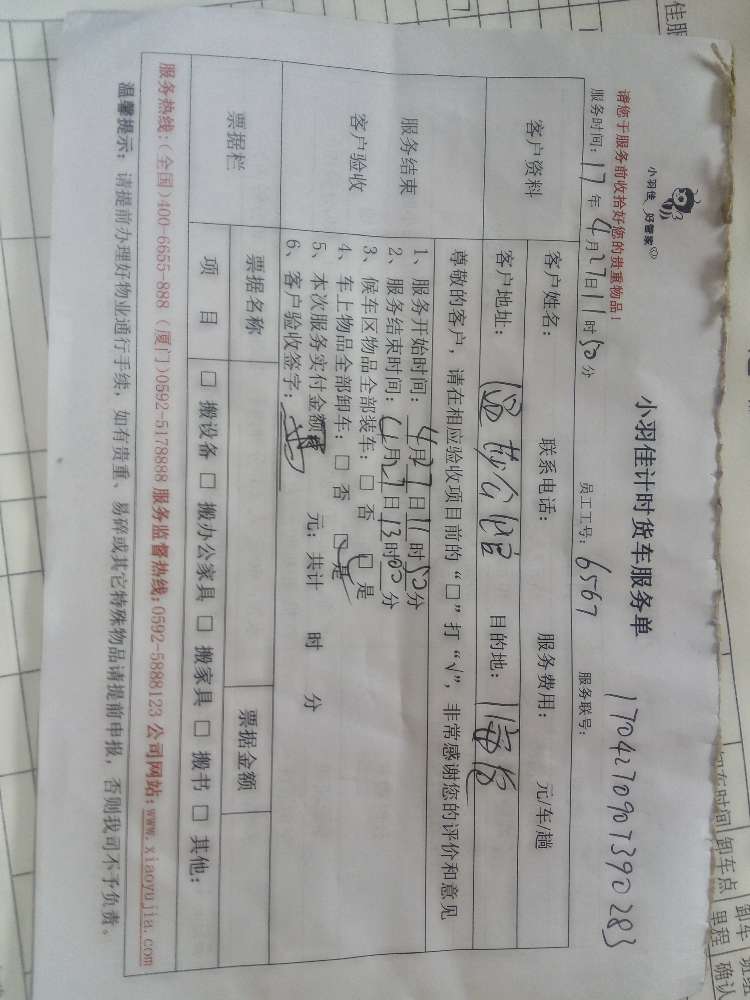 小羽佳 好管家
小羽佳计时货车服务单
1704270907390283
请您于服务前收拾好您的贵重物品！
服务时间：17年4月27日11时50分 员工工号：6567 服务联号：
客户资料
客户姓名： 联系电话： 服务费用： 元/车/趟
客户地址： 目的地：
尊敬的客户，请在相应验收项目前的“□”打“√”，非常感谢您的评价和意见
服务结束
客户验收
1、服务开始时间：4月27日11时50分
2、服务结束时间：4月27日13时00分
3、候车区物品全部装车：□ 否 □ 是
4、车上物品全部卸车：□ 否 □ 是
5、本次服务实付金额 元；共计 时 分
6、客户验收签字：
票据栏
票据名称 票据金额
项 目 □ 搬设备 □ 搬办公家具 □ 搬家具 □ 搬书 □ 其他：
服务热线：（全国）400-6655-888（厦门）0592-5178888 服务监督热线：0592-5888123 公司网站：www.xiaoyujia.com
温馨提示：请提前办理好物业通行手续，如有贵重、易碎或其它特殊物品请提前申报，否则我司不予负责。
佳服
卸车点
里程
确认
卸车